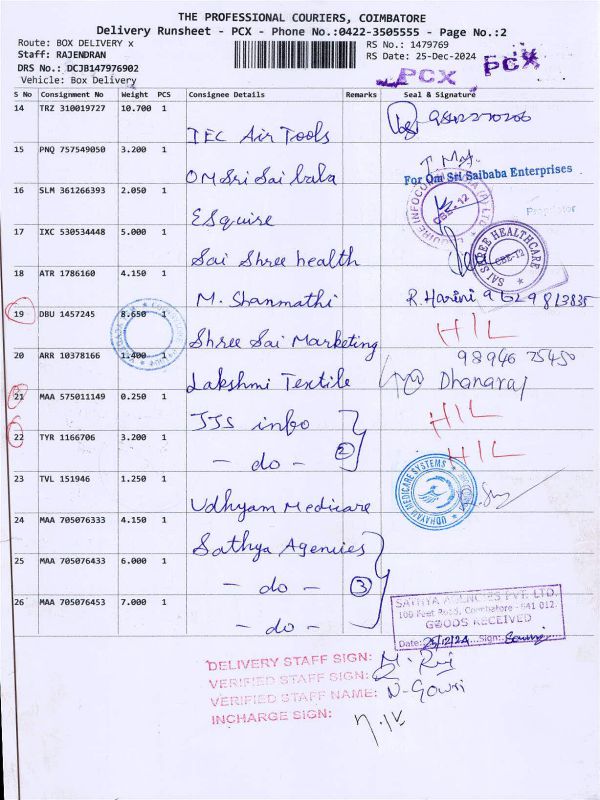 THE PROFESSIONAL COURIERS, COIMBATORE
Delivery Runsheet - PCX - Phone No.:0422-3505555 - Page No.:2
Route: BOX DELIVERY x
RS No.: 1479769
Staff: RAJENDRAN
RS Date: 25-Dec-2024
DRS No.: DCJB147976902
Vehicle: Box Delivery
PCX PCX
S No Consignment No Weight PCS Consignee Details Remarks Seal & Signature
14 TRZ 310019727 10.700 1
IEC Air Tools 9842270206
15 PNQ 757549050 3.200 1
OM Sri Sai baba
For Om Sri Saibaba Enterprises
Proprietor
16 SLM 361266393 2.050 1
ESquire
CBE-12
17 IXC 530534448 5.000 1
Sai Shree health
SAI SHREE HEALTHCARE
CBE-12
18 ATR 1786160 4.150 1
M. Shanmathi R. Harini 9629813835
19 DBU 1457245 8.650 1
Shree Sai Marketing HIL
20 ARR 10378166 1.400 1
98946 75450
Lakshmi Textile Dhanaraj
21 MAA 575011149 0.250 1
JJS info HIL
22 TYR 1166706 3.200 1
- do - 2 HIL
23 TVL 151946 1.250 1
Udhyam Medicare
UDHAYAM MEDICARE SYSTEMS
24 MAA 705076333 4.150 1
Sathya Agencies
25 MAA 705076433 6.000 1
- do - 3
26 MAA 705076453 7.000 1
- do -
SATHYA AGENCIES PVT. LTD.
100 Feet Road, Coimbatore - 641 012.
GOODS RECEIVED
Date: 25/12/24 Sign:
DELIVERY STAFF SIGN: M. Raj
VERIFIED STAFF SIGN:
VERIFIED STAFF NAME: N-Gowri
INCHARGE SIGN: